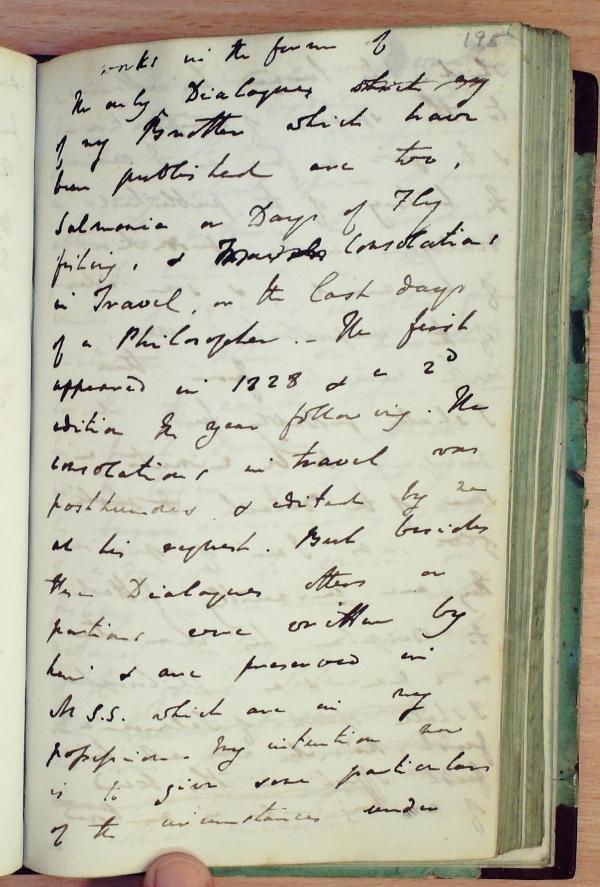 195
works in the form of
The only Dialogues which my
of my Brother which have
been published are two,
Salmonia or Days of Fly
fishing, & Consolations
in Travel, or the last days
of a Philosopher. – The first
appeared in 1828 & a 2d
edition the year following. The
consolations in travel was
posthumous & edited by me
at his request. But besides
these Dialogues others or
portions were written by
him & are preserved in
M.S.S. which are in my
possession. My intention now
is to give some particulars
of the circumstances under